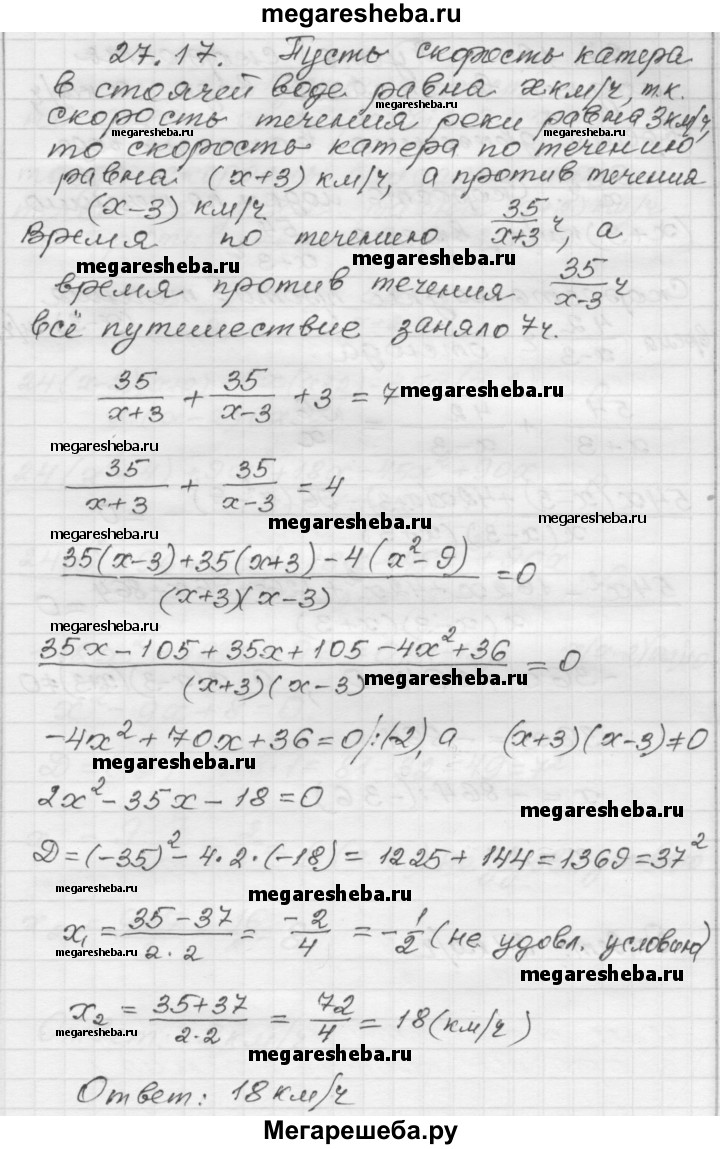 megaresheba.ru
27.17. Пусть скорость катера
в стоячей воде равна x км/ч, т.к.
скорость течения реки равна 3 км/ч,
megaresheba.ru megaresheba.ru
то скорость катера по течению
равна (x+3) км/ч, а против течения
(x-3) км/ч
Время по течению 35/(x+3) ч, а
megaresheba.ru megaresheba.ru
время против течения 35/(x-3) ч
всё путешествие заняло 7 ч.
35/(x+3) + 35/(x-3) + 3 = 7
megaresheba.ru
megaresheba.ru
35/(x+3) + 35/(x-3) = 4
megaresheba.ru megaresheba.ru
(35(x-3)+35(x+3)-4(x²-9))/((x+3)(x-3)) = 0
megaresheba.ru
(35x-105+35x+105-4x²+36)/((x+3)(x-3)) = 0
megaresheba.ru
-4x²+70x+36=0/:(-2), а (x+3)(x-3)≠0
megaresheba.ru
2x²-35x-18=0
megaresheba.ru
Д=(-35)²-4·2·(-18)=1225+144=1369=37²
megaresheba.ru megaresheba.ru
x₁ = (35-37)/(2·2) = -2/4 = -1/2 (не удовл. условию)
megaresheba.ru megaresheba.ru
x₂ = (35+37)/(2·2) = 72/4 = 18 (км/ч)
megaresheba.ru megaresheba.ru
Ответ: 18 км/ч
Мегарешеба.ру